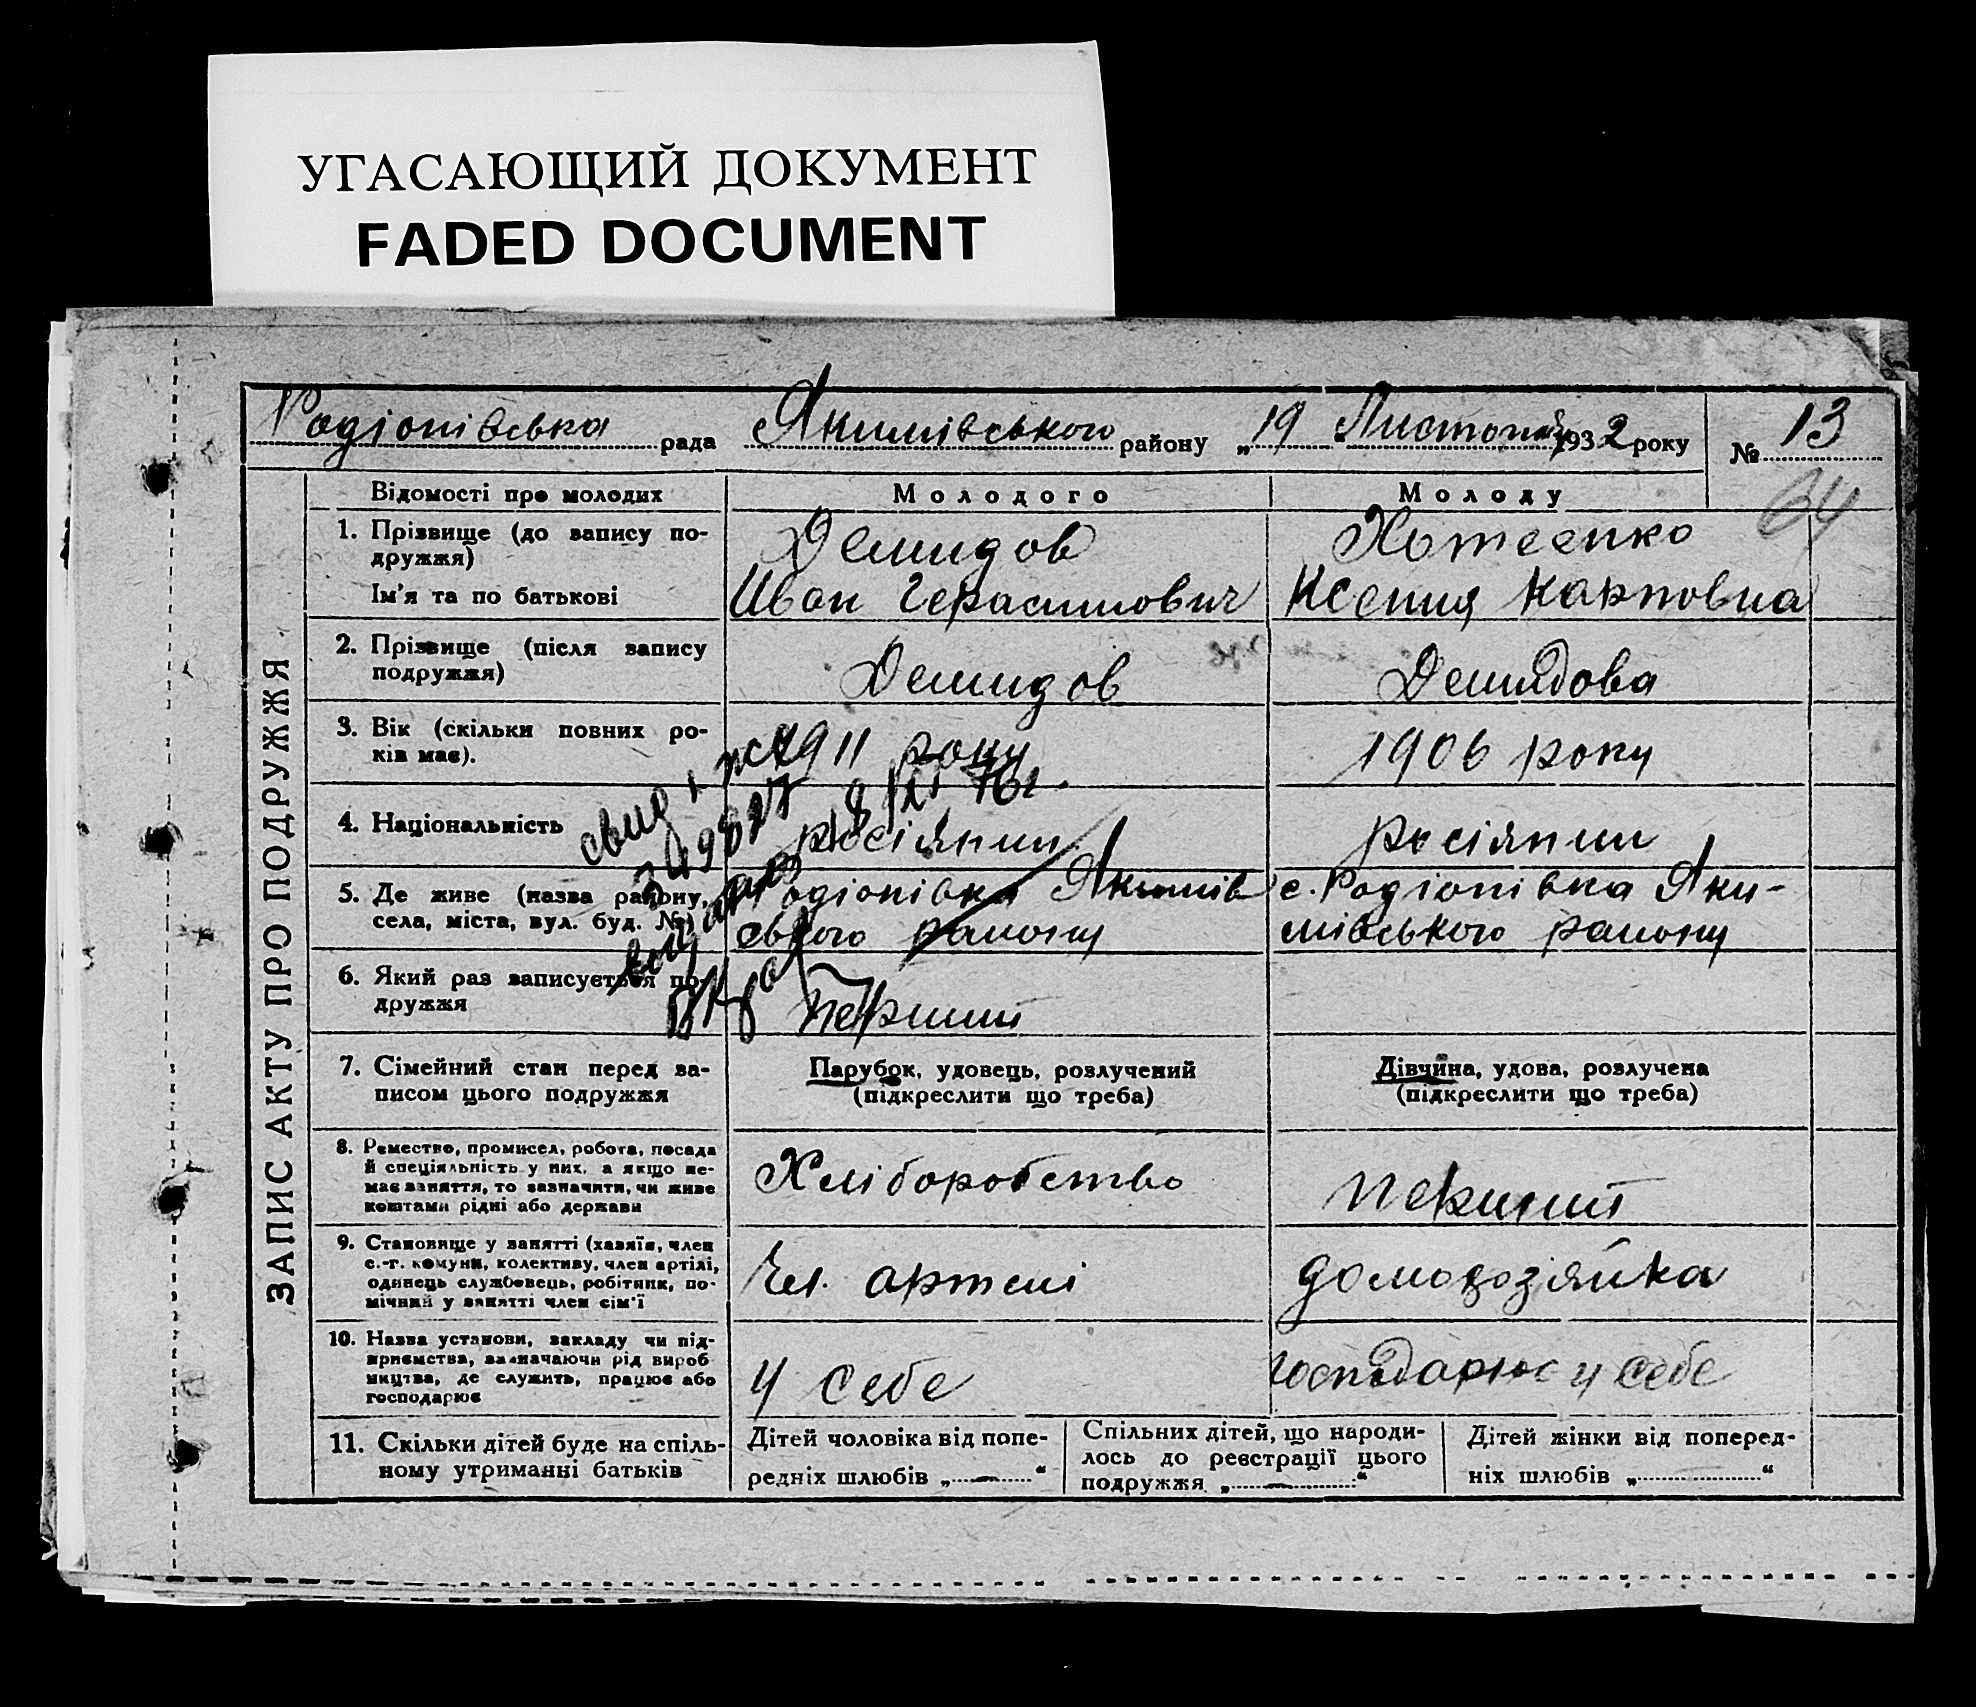 УГАСАЮЩИЙ ДОКУМЕНТ
FADED DOCUMENT
Родіонівська рада Якимівського району „19 Листопада 1932 року № 13
64
ЗАПИС АКТУ ПРО ПОДРУЖЖЯ
Відомості про молодих
Молодого
Молоду
1. Прізвище (до запису по-
дружжя)
Ім'я та по батькові
Демидов
Иван Герасимович
Ксения Карповна
2. Прізвище (після запису
подружжя)
Демидов
Демидова
3. Вік (скільки повних ро-
ків має).
1911 року
1906 року
4. Національність
росіянин
росіянин
5. Де живе (назва району,
села, міста, вул. буд. №)
Родіонівка Якимів
ського району
с. Родіонівка Яки-
мівського району
6. Який раз записується по-
дружжя
перший
7. Сімейний стан перед за-
писом цього подружжя
Парубок, удовець, розлучений
(підкреслити що треба)
Дівчина, удова, розлучена
(підкреслити що треба)
8. Ремество, промисел, робота, посада
й спеціяльність у них, а якщо не-
має заняття, то зазначити, чи живе
коштами рідні або держави
Хліборобство
перший
9. Становище у занятті (хазяїн, член
с.-г. комуни, колективу, член артілі,
одинець службовець, робітник, по-
мічний у занятті член сім'ї
Чл. артелі
домохозяйка
10. Назва установи, закладу чи під-
приємства, зазначаючи рід вироб
ництва, де служить, працює або
господарює
у себе
господарює у себе
11. Скільки дітей буде на спіль-
ному утриманні батьків
Дітей чоловіка від попе-
редніх шлюбів „—“
Спільних дітей, що народи-
лось до реєстрації цього
подружжя „—“
Дітей жінки від поперед-
ніх шлюбів „ “